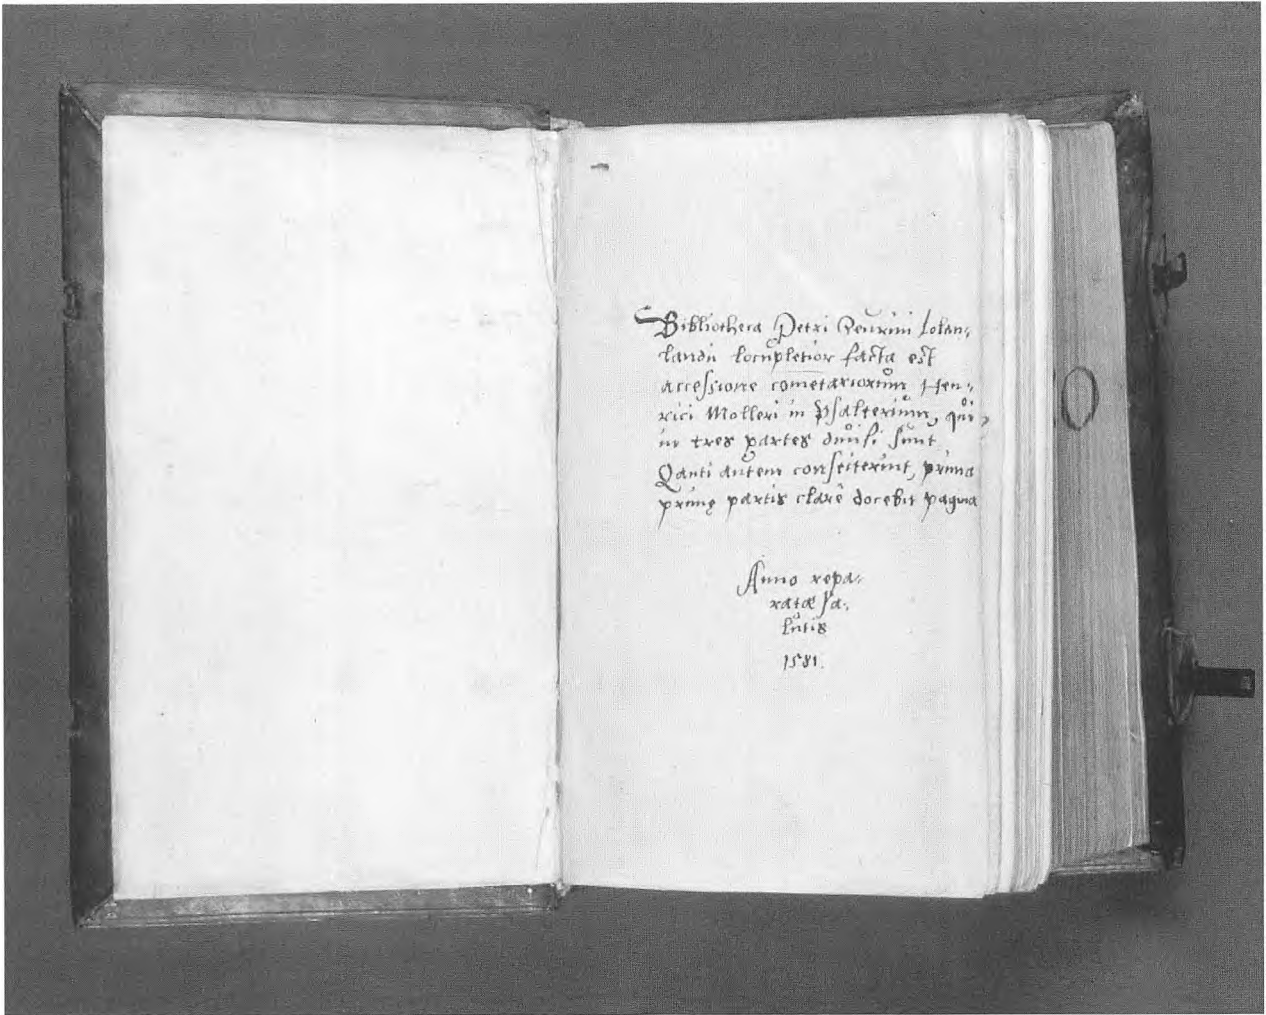 Bibliotheca Petri Reurini Lolan,
landii locupletior facta est
accessione cometariorum Hen,
rici Molleri in Psalterium, qui,
in tres partes diuisi sunt
Qanti autem consciterint, prima
primę partis clarè docebit pagina
Anno repa,
ratæ sa,
lutis
1581.